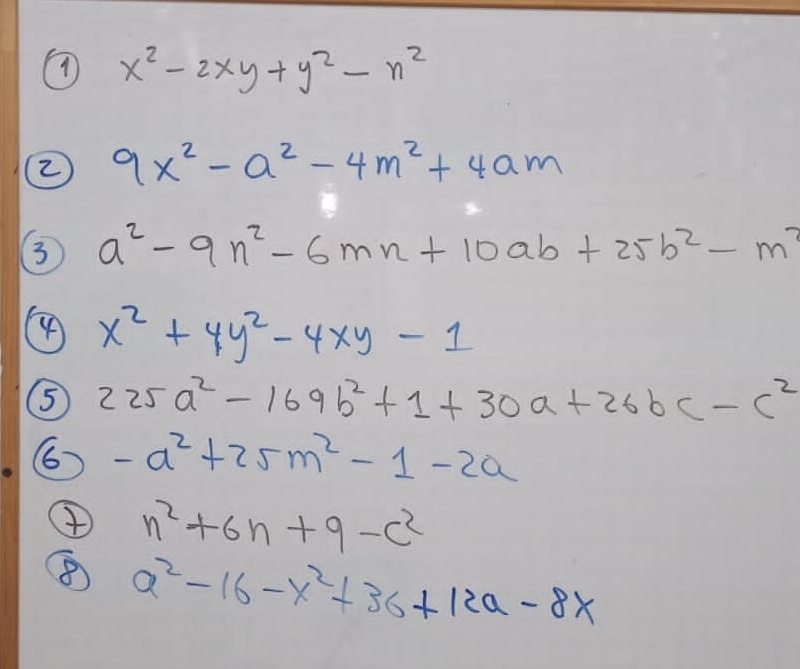 ① x² - 2xy + y² - n²
② 9x² - a² - 4m² + 4am
③ a² - 9n² - 6mn + 10ab + 25b² - m²
④ x² + 4y² - 4xy - 1
⑤ 225a² - 169b² + 1 + 30a + 26bc - c²
⑥ -a² + 25m² - 1 - 2a
⑦ n² + 6n + 9 - c²
⑧ a² - 16 - x² + 36 + 12a - 8x